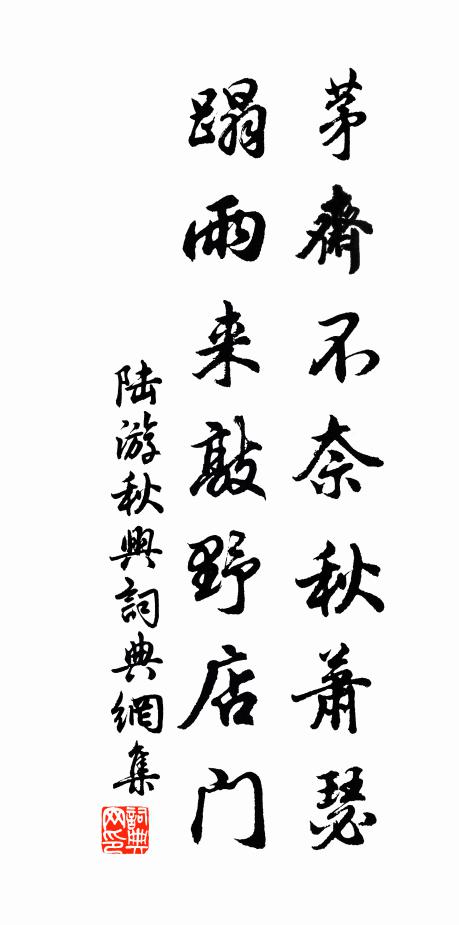 茅齋不奈秋蕭瑟
蹋雨来敲野店门
陆游秋興詞典網集
詞典网印